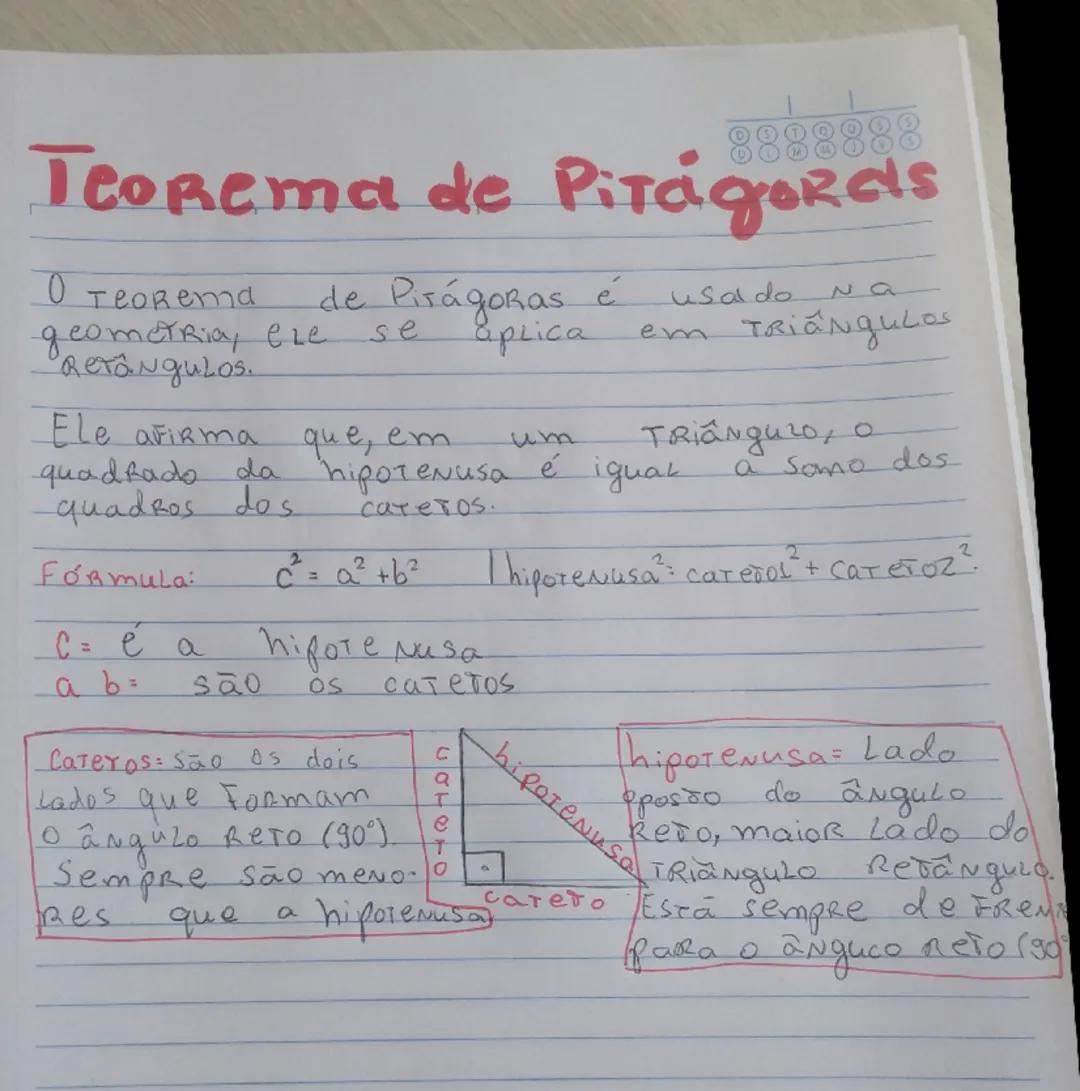 D S T Q Q S S
D L M M J V S
Teorema de Pitágoras
O Teorema de Pitágoras é usado na
geometria, ele se aplica em Triângulos
Retângulos.
Ele afirma que, em um Triângulo, o
quadrado da hipotenusa é igual a somo dos
quadros dos catetos.
Fórmula: c² = a² + b² | hipotenusa² = cateto1² + cateto2².
C = é a hipotenusa
a b = são os catetos
Catetos = são os dois
lados que formam
o ângulo Reto (90°).
Sempre são meno-
res que a hipotenusa
cateto
hipotenusa
cateto
hipotenusa = Lado
oposto do ângulo
Reto, maior lado do
Triângulo Retângulo.
Está sempre de frente
para o ânguco reto (90